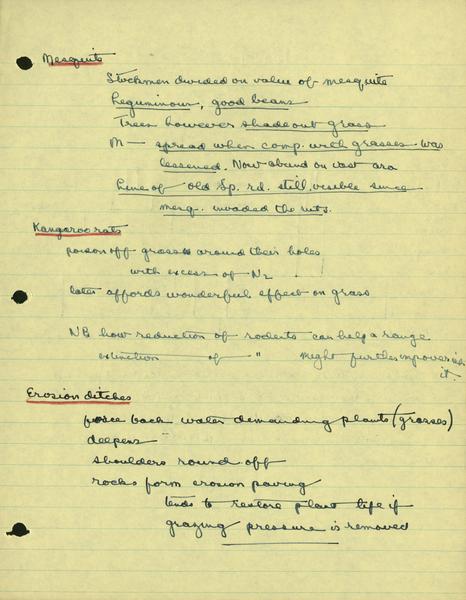 Mesquite
Stockmen divided on value of mesquite
Leguminous, good beans
Trees however shade out grass
M — spread when comp. with grasses was
lessened. Now abund on vast area
Line of old Sp. rd. still visible since
mesq. invaded the ruts.
Kangaroo rats
poison off grass around their holes
with excess of N2
later affords wonderful effect on grass
NB how reduction of rodents can help a range
extinction — of " might further impoverish
it.
Erosion ditches
force back water demanding plants (grasses)
deepens
shoulders round off
rocks form erosion paving
tends to restore plant life if
grazing pressure is removed